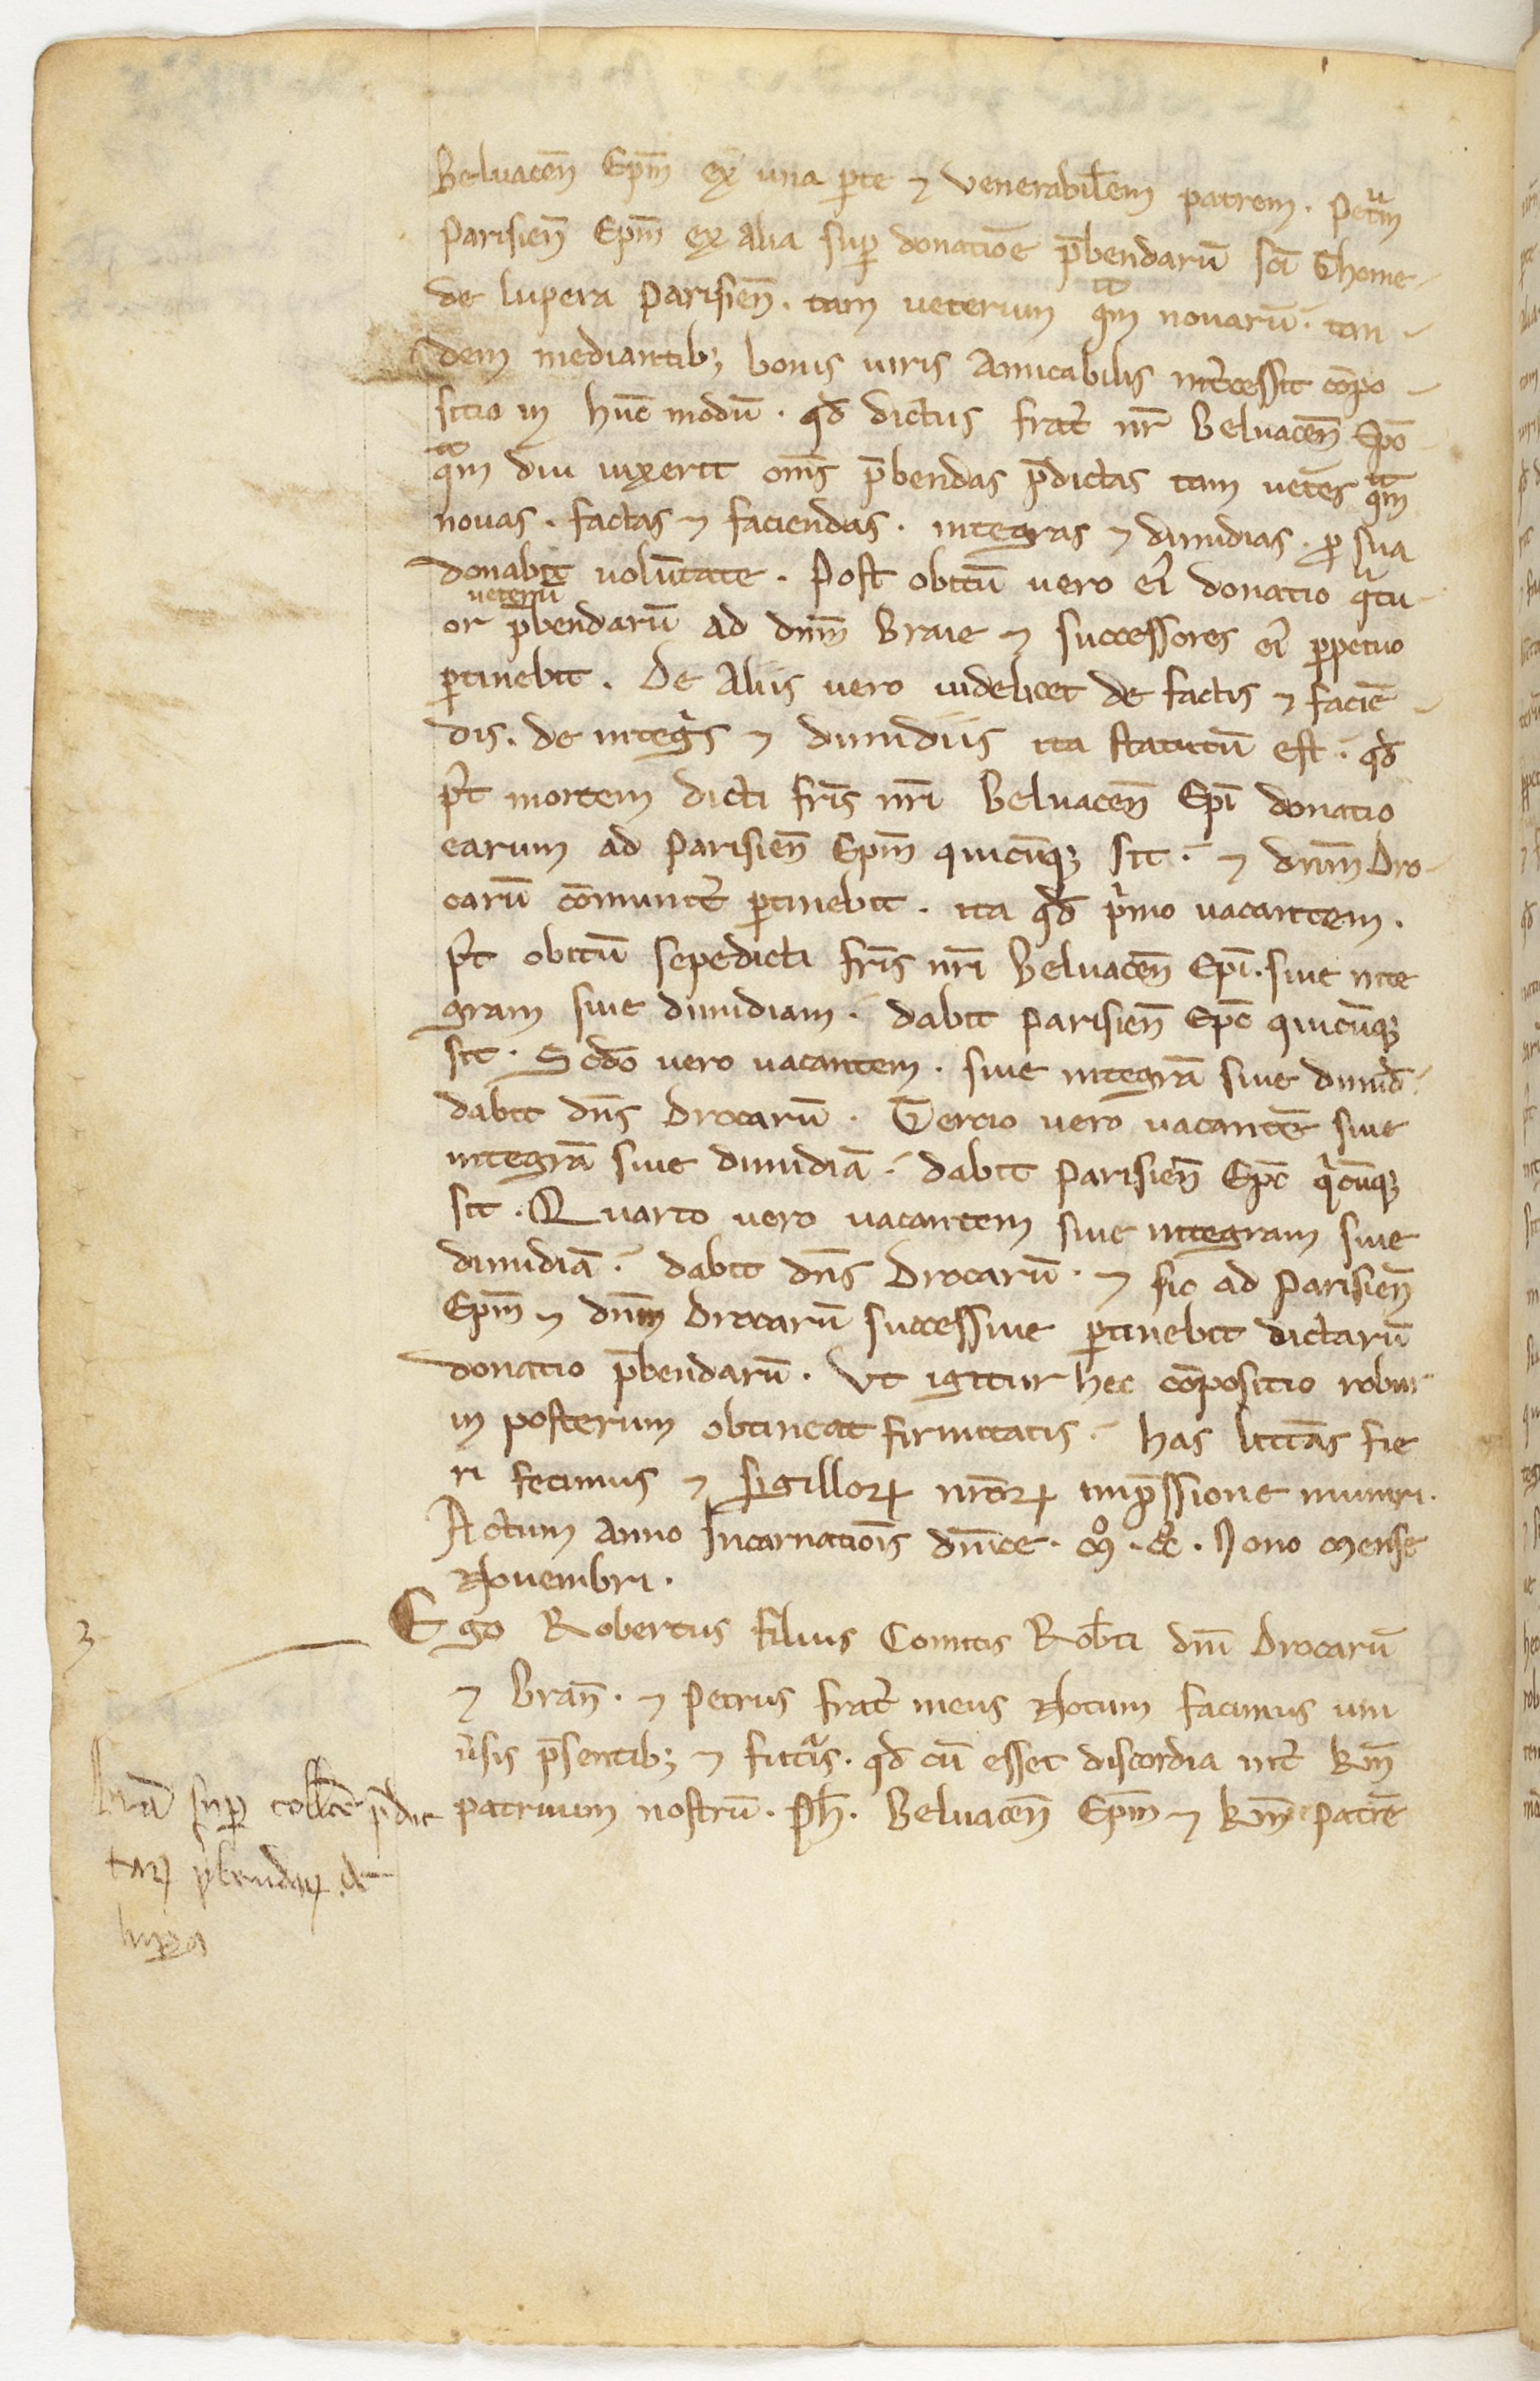 Beluacen̄ Ep̄m ex una ꝑte ⁊ venerabil̄em patrem . Petrum
Parisien̄ Ep̄m ex alia suꝑ donatiōe p̄bendarū sc̄i Thome
de lupera Parisien̄ . tam ueterum qͣm nouarū . tan
dem mediantibꝫ bonis uiris amicabilis int̾cessit cōpo
sitio in hūc modū . qđ dictus frat̾ nr̄ Beluacen̄ Ep̄c
qͣm diu uixerit om̄s p̄bendas p̄dictas tam uet̾es qͣm
nouas . factas ⁊ faciendas . integras ⁊ dimidias . ꝓ sua
donabit uolūtate . Post obitū vero ei̾ donatio qͣtu
ueterū
or p̄bendarū ad dn̄m Braie ⁊ successores ei̾ ꝑpetuo
ꝑtinebit . De Aliis vero uidelicet de factis ⁊ faciē
dis . de integͥs ⁊ dimidiis ita statutū est . qđ
p̾t mortem dicti fr̄is nr̄i Beluacen̄ Ep̄i donatio
earum ad Parisien̄ Ep̄m quicūqꝫ sit . ⁊ dn̄m Dro
carū cōmunit̾ ꝑtinebit . ita qđ pͥmo uacantem .
p̾t obitū sepedicti fr̄is nr̄i Beluacen̄ Ep̄i . siue inte
gram siue dimidiam . dabit Parisien̄ Ep̄c quicūqꝫ
sit . Sc̄do vero uacantem . siue integrā siue dimiđ .
dabit dn̄s Drocarū . Tercio vero uacantē siue
integrā siue dimidiā . dabit Parisien̄ Ep̄c qͥcūqꝫ
sit . Quarto vero uacantem siue integram siue
dimidiā . dabit dn̄s Drocarū . ⁊ sic ad Parisien̄
Ep̄m ⁊ dn̄m Drocarū successiue ꝑtinebit dictarū
donatio p̄bendarū . Vt igitur hec cōpositio robur
in posterum obtineat firmitatis . has litt̄as fie
ri fecimus ⁊ sigilloꝝ nr̄oꝝ imp̄ssione muniri .
Actum anno Incarnatiōis dn̄ice . mͦ . ccͦ . Nono mense
Nouembri .
3
Ego Robertus filius Comitis Rob̄ti dn̄i Drocarū
⁊ Bran̄ . ⁊ Petrus frat̾ meus Notum facimus uni
u̾sis p̄sentibꝫ ⁊ futͣis . qđ cū esset discordia int̾ km̄
patruum nostrū . Ph̄ . Beluacen̄ Ep̄m ⁊ km̄ patrē
suꝑ coll̄oē p̄dic
taꝝ p̄bendaꝝ de
lupera